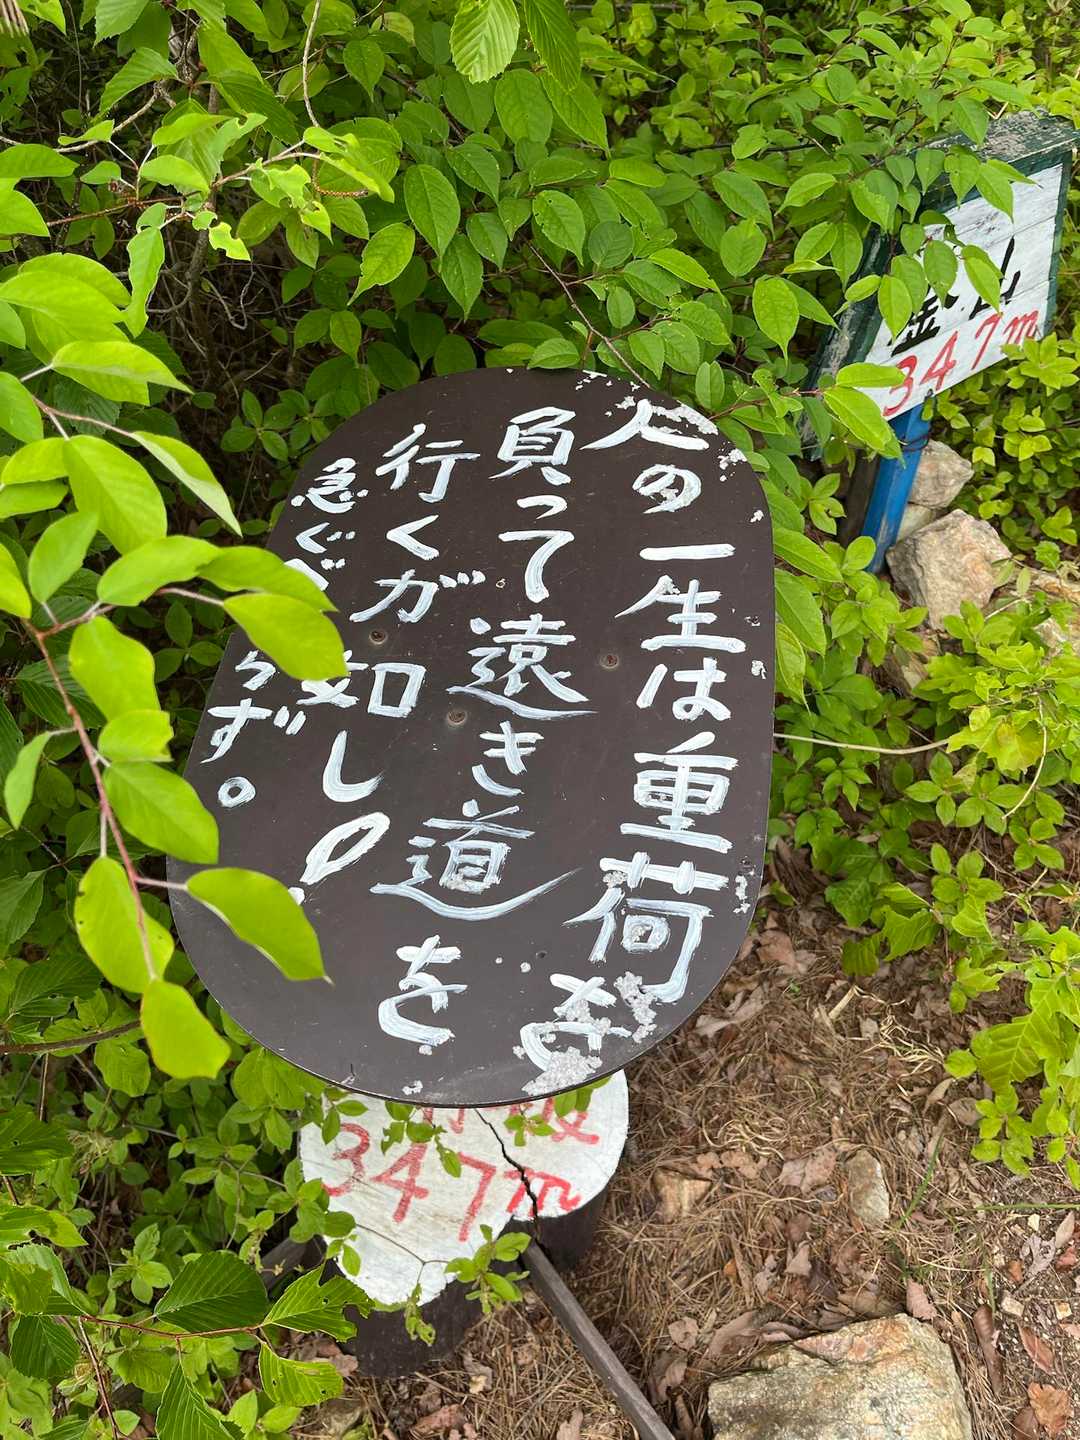 人の一生は重荷を
負って遠き道を
行くが如し。
急ぐべからず。
347m
347m